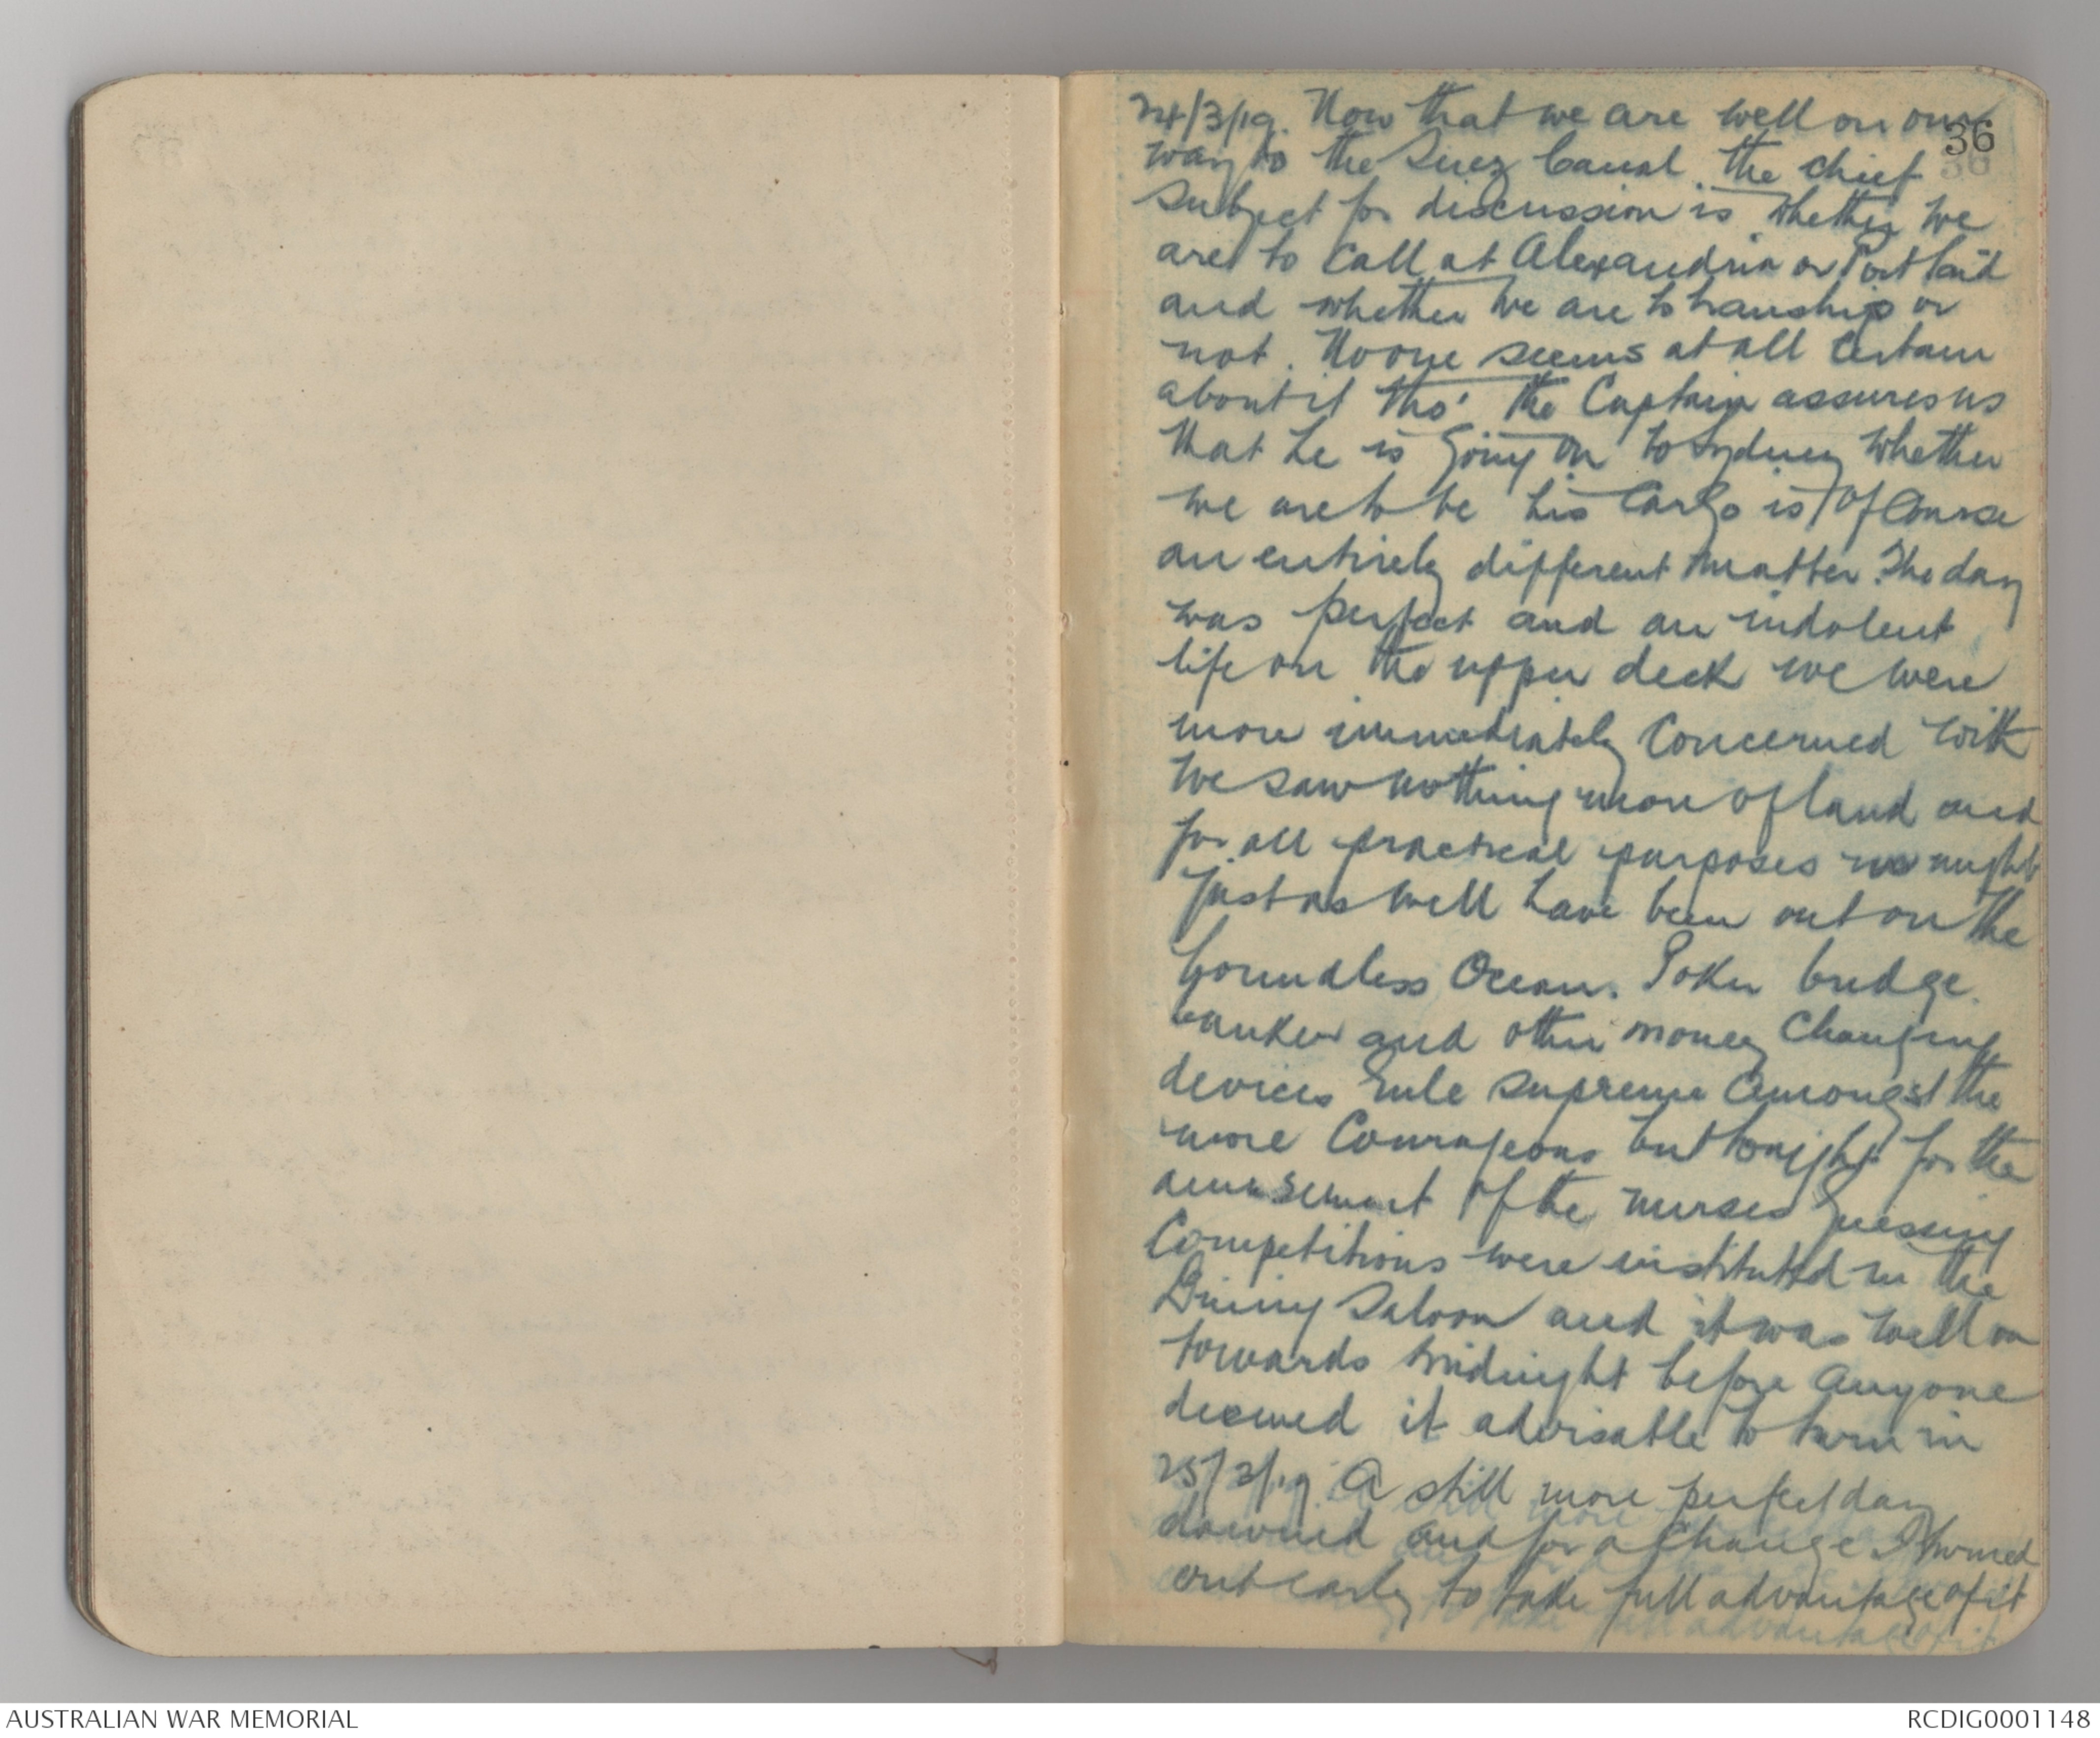 36
24/3/19. Now that we are well on our
way to the Suez Canal the chief
subject for discussion is whether we
are to call at Alexandria or Port Said
and whether we are to tranship or
not. No one seems at all certain
about it tho' the Captain assures us
that he is going on to Sydney whether
we are to be his cargo is of course
an entirely different matter. The day
was perfect and an indolent
life on the upper deck we were
more immediately concerned with
We saw nothing more of land and
for all practical purposes we might
just as well have been out on the
boundless Ocean. Poker bridge.
banker and other money changing
devices rule supreme amongst the
more Courageous but tonight for the
amusement of the nurses guessing
Competitions were instituted in the
Dining Saloon and it was well on
towards midnight before anyone
deemed it advisable to turn in
25/3/19. A still more perfect day
dawned and for a change I turned
out early to take full advantage of it
AUSTRALIAN WAR MEMORIAL
RCDIG0001148